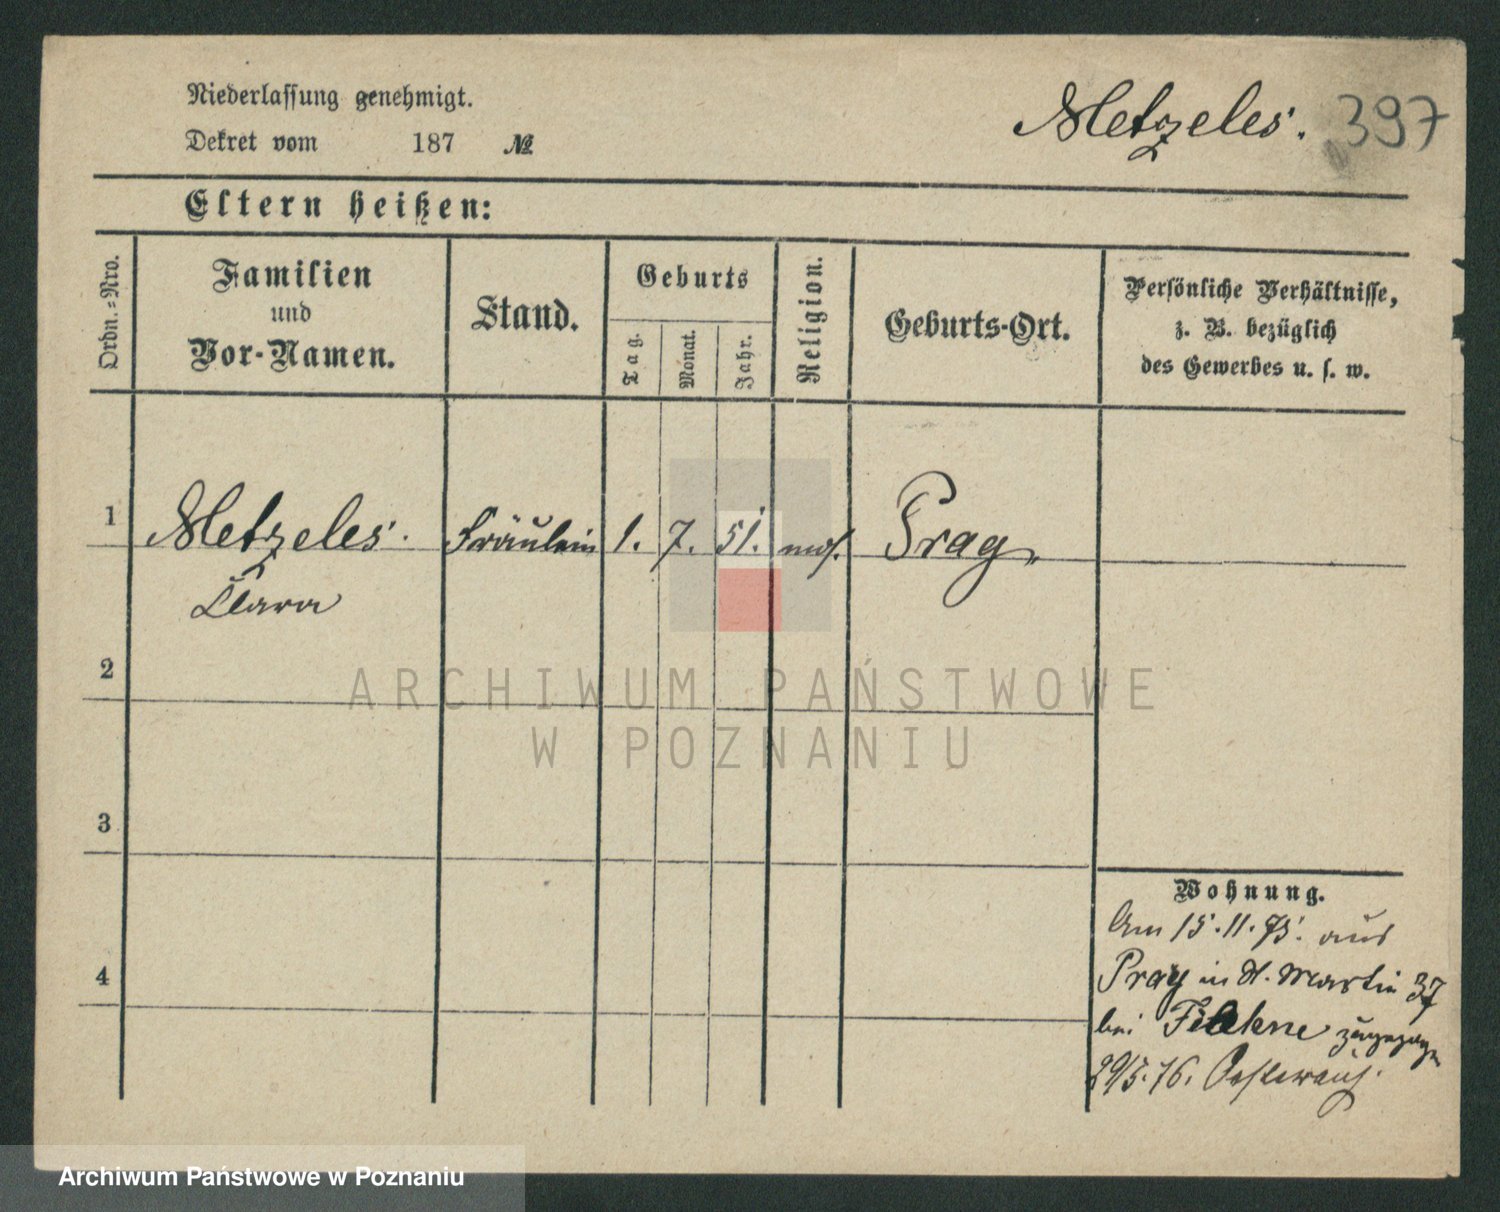 Niederlassung genehmigt.
Dekret vom 187 №
Metzeles. 397
Eltern heißen:
Ordn.-Nro.
Familien
und
Vor-Namen.
Stand.
Geburts
Tag.
Monat.
Jahr.
Religion.
Geburts-Ort.
Persönliche Verhältnisse,
z. B. bezüglich
des Gewerbes u. s. w.
1 Metzeles. Fräulein 1. 7. 51. mos. Prag
Clara
2
3
4
Wohnung.
Am 15.11.75. aus
Prag in St. Martin 37
bei zugezogen
29/5.76. Oesterreich.
ARCHIWUM PAŃSTWOWE
W POZNANIU
Archiwum Państwowe w Poznaniu